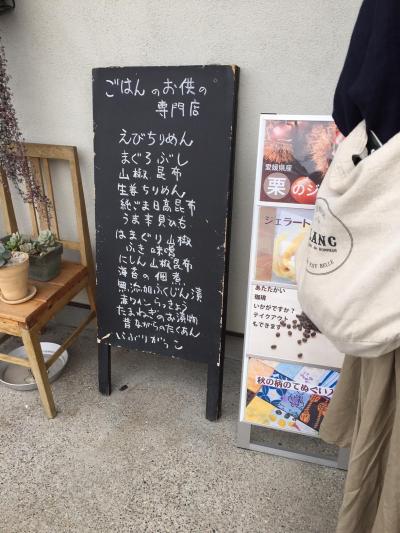 ごはんのお供の
専門店
えびちりめん
まぐろぶし
山椒昆布
生姜ちりめん
純ごま日高昆布
うま木貝ひも
はまぐり山椒
ふき味噌
にしん山椒昆布
海苔の佃煮
無添加ふくじん漬
たまねぎのお漬物
昔ながらのたくあん
いぶりがっこ
愛媛県産
栗のジ
ジェラート
あたたかい
珈琲
いかがですか?
テイクアウト
もできます
秋の柄のてぬぐい入
LANC
EST BELLE